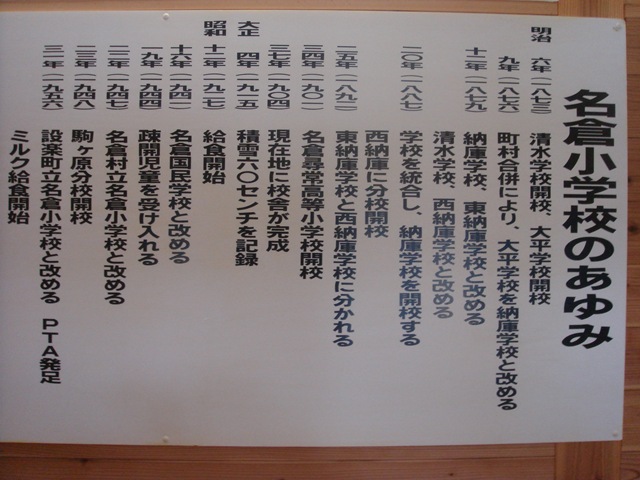 名倉小学校のあゆみ
明治 六年(一八七三) 清水学校開校、大平学校開校
九年(一八七六) 町村合併により、大平学校を納庫学校と改める
十二年(一八七九) 納庫学校、東納庫学校と改める
清水学校、西納庫学校と改める
二〇年(一八八七) 学校を統合し、納庫学校を開校する
西納庫に分校開校
二五年(一八九二) 東納庫学校と西納庫学校に分かれる
三四年(一九〇一) 名倉尋常高等小学校開校
三七年(一九〇四) 現在地に校舎が完成
大正 四年(一九一五) 積雪六〇センチを記録
昭和 十二年(一九三七) 給食開始
十六年(一九四一) 名倉国民学校と改める
一九年(一九四四) 疎開児童を受け入れる
二二年(一九四七) 名倉村立名倉小学校と改める
二三年(一九四八) 駒ヶ原分校開校
三一年(一九五六) 設楽町立名倉小学校と改める PTA発足
ミルク給食開始